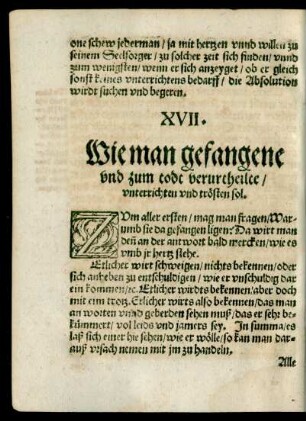 one schew jederman/ ja mit hertzen vnnd willen zu
seinem Seelsorger/ zu solcher zeit sich finden/ vnnd
zum wenigsten/ wenn er sich anzeyget/ ob er gleich
sonst keines vnterrichtens bedarff/ die Absolution
wirdt suchen vnd begeren.
XVII.
Wie man gefangene
vnd zum tode verurtheilte/
vnterrichten vnd trösten sol.
ZVm aller ersten/ mag man fragen/ War-
umb sie da gefangen ligen: Da wirt man
deñ an der antwort bald mercken/ wie es
vmb jr hertz stehe.
Etlicher wirt schweigen/ nichts bekennen/ oder
sich anheben zu entschuldigen/ wie er vnschuldig dar
ein kommen/ ꝛc. Etlicher wirdts bekennen/ aber doch
mit eim trotz. Etlicher wirts also bekennen/ das man
an worten vnnd geberden sehen muß/ das er sehr be-
kümmert/ vol leids vnd jamers sey. In summa/ es
laß sich einer hie sehen/ wie er wölle/ so kan man dar-
auß vrsach nemen mit jm zu handeln.
Alle